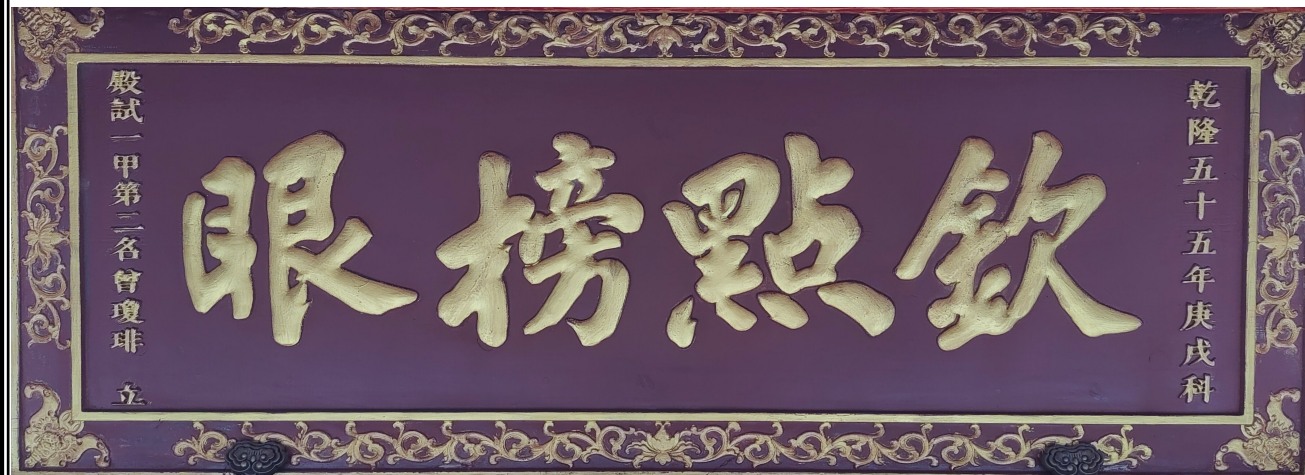 乾隆五十五年庚戌科
欽點榜眼
殿試一甲第二名曾瓊琲 立